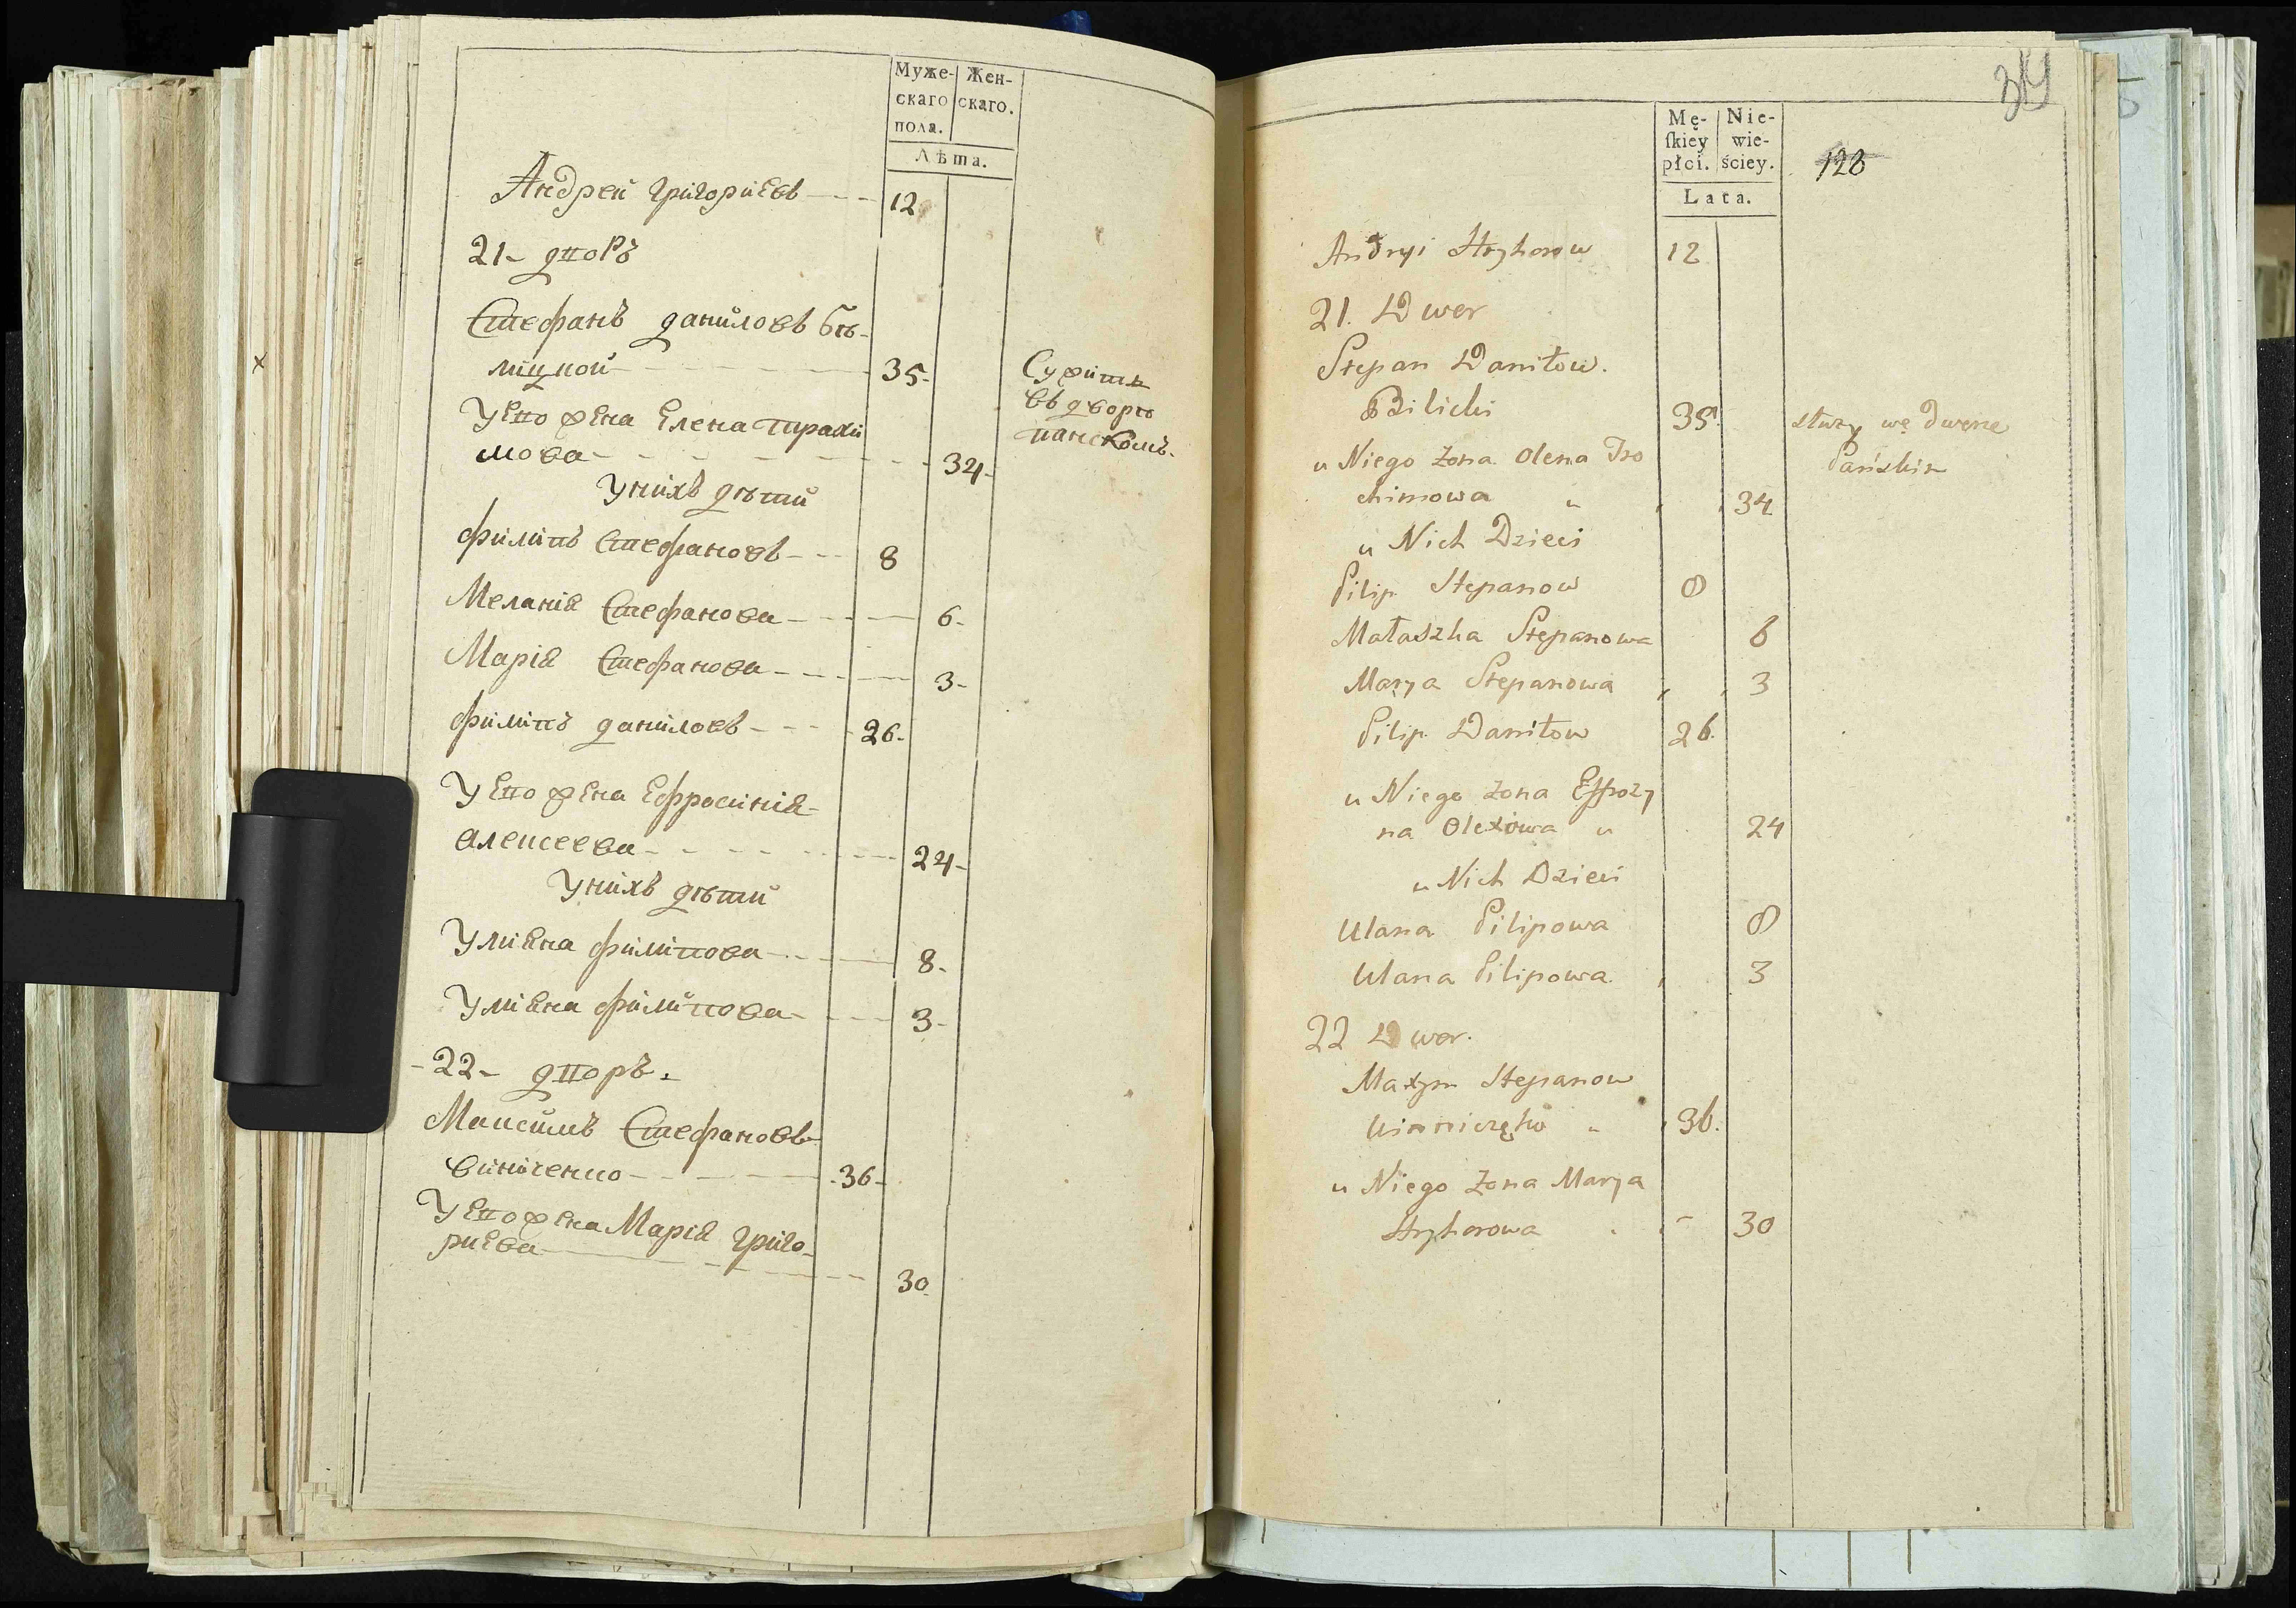 Муже-
скаго
пола.
Жен-
скаго.
Лѣта.
Андрей григориевъ 12
21- дворъ
Стефанъ даниловъ бѣ-
лицкой 35-
Служитъ
въ дворѣ
панскомъ.
У его жена Елена трахи
мова 34-
У нихъ дѣти
филипъ Стефановъ 8
Меланія Стефанова 6-
Марія Стефанова 3-
филипъ даниловъ 26-
У его жена Ефросинія
алексеева 24-
У нихъ дѣти
Улияна филипова 8-
Улияна филипова 3-
-22- дворъ.
Максимъ Стефановъ
виниченко 36-
У его жена Марія григо-
риева 30
34
Mę-
ſkiey
płci.
Nie-
wie-
ściey.
Lata.
128
Andryi Hryhorow 12
21. Dwer
Stepan Daniłow.
Bilicki 35
służy wę dwerze
Pańskim
u Niego żona Olena Tro
chimowa 34
u Nich Dzieci
Pilip Stepanow 8
Małaszka Stepanowa 6
Marya Stepanowa 3
Pilip Daniłow 26.
u Niego żona Effrozy
na Olexowa 24
u Nich Dzieci
Ulana Pilipowa 8
Ulana Pilipowa. 3
22 Dwer.
Maxym Stepanow
Winniczęko 36.
u Niego żona Marya
Hryhorowa 30